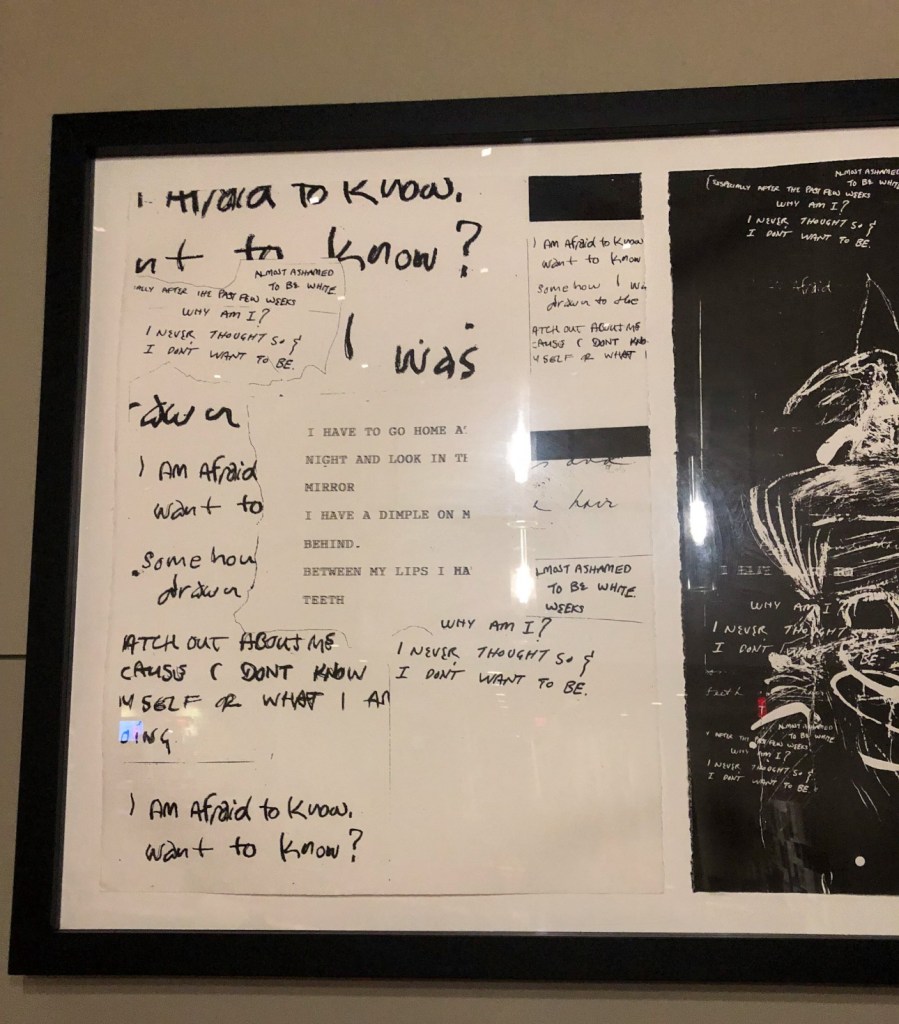 I Afraid to know.
nt to know?
ALMOST ASHAMED
TO BE WHITE
IALLY AFTER THE PAST FEW WEEKS
WHY AM I?
I NEVER THOUGHT SO &
I DON'T WANT TO BE.
I was
rawn
I AM Afraid
want to
Somehow
drawn
I HAVE TO GO HOME A
NIGHT AND LOOK IN TH
MIRROR
I HAVE A DIMPLE ON M
BEHIND.
BETWEEN MY LIPS I HA
TEETH
ATCH OUT ABOUT ME
CAUSE I DONT KNOW
YSELF OR WHAT I AM
OING
I AM Afraid to know.
want to know?
I AM Afraid to know
want to know
somehow I wa
drawn to the
ATCH OUT ABOUT ME
CAUSE I DONT KNO
YSELF OR WHAT I
hair
LMOST ASHAMED
TO BE WHITE
WEEKS
WHY AM I?
I NEVER THOUGHT SO &
I DONT WANT TO BE.
ALMOST ASHAMED
TO BE WHITE
(ESPECIALLY AFTER THE PAST FEW WEEKS
WHY AM I?
I NEVER THOUGHT SO &
I DON'T WANT TO BE.
Afraid
WHY AM I?
I NEVER THOUGHT
I DONT
BE.
T
ALMOST ASHAMED
TO BE WHITE
AFTER THE PAST FEW WEEKS
WHY AM I?
I NEVER THOUGHT SO &
I DON'T WANT TO BE.